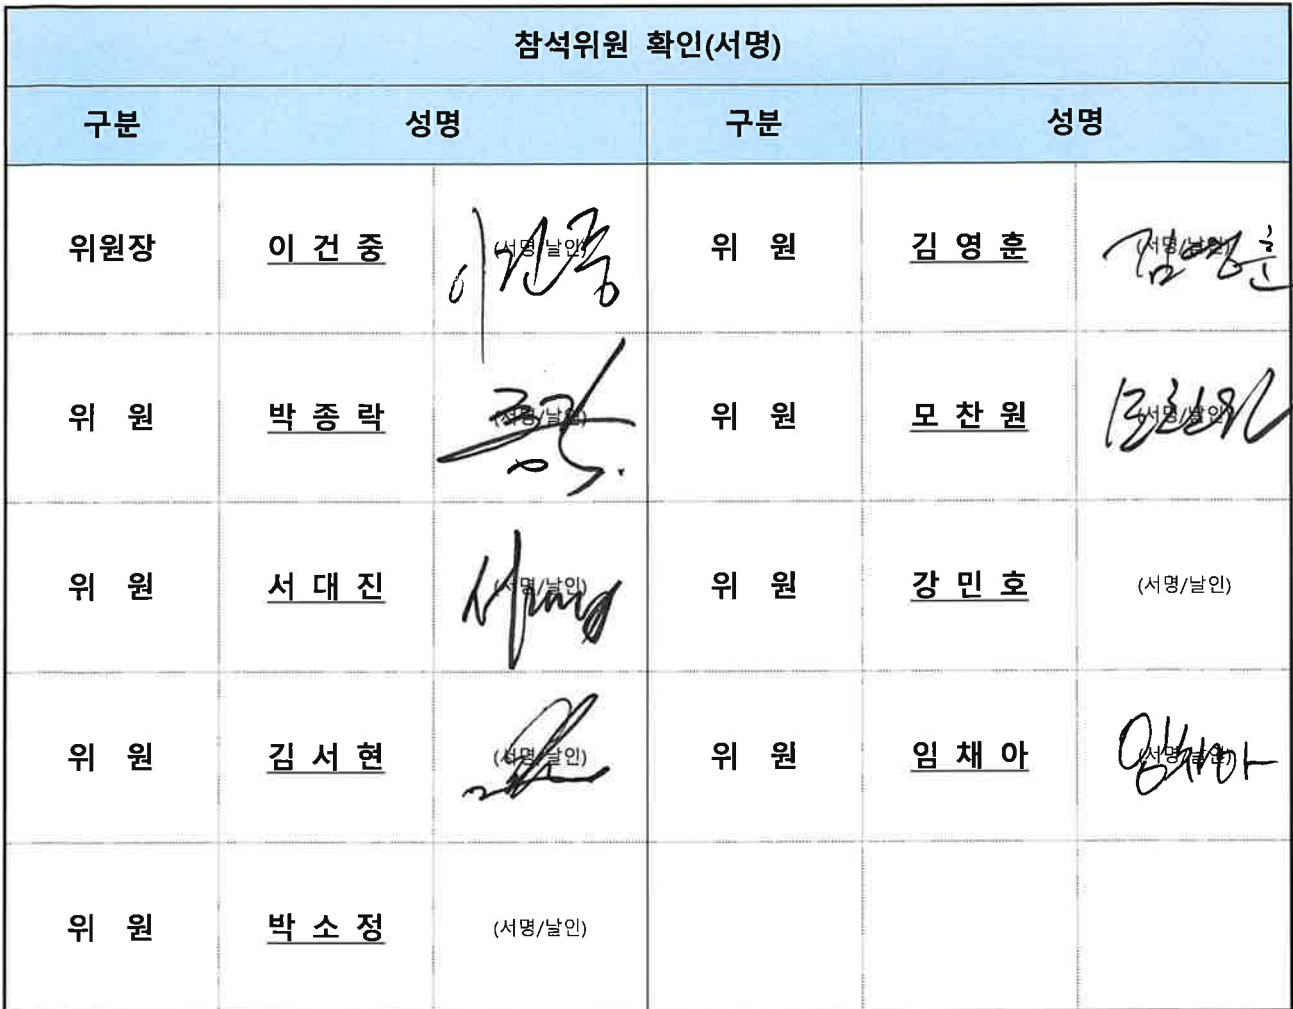 참석위원 확인(서명)
구분 성명 구분 성명
위원장 이 건 중 (서명/날인) 이건중 위 원 김 영 훈 (서명/날인) 김영훈
위 원 박 종 락 (서명/날인) 위 원 모 찬 원 (서명/날인) 모찬원
위 원 서 대 진 (서명/날인) 위 원 강 민 호 (서명/날인)
위 원 김 서 현 (서명/날인) 위 원 임 채 아 (서명/날인) 임채아
위 원 박 소 정 (서명/날인)